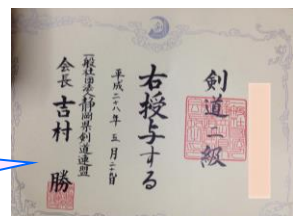 剣道二級
右授与する
平成二十八年 五月二十二日
一般社団法人静岡県剣道連盟
会長 吉村 勝